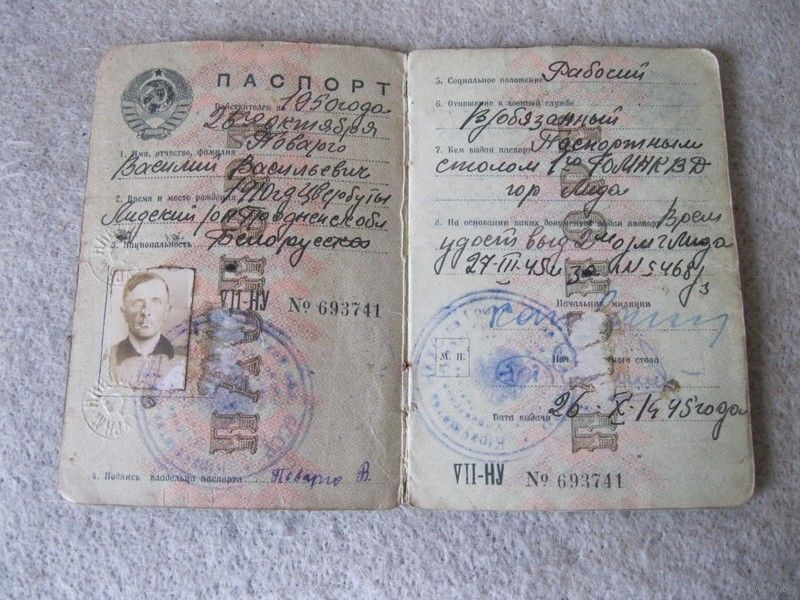 ПАСПОРТ
Действителен по 1950 года
26го октября
1. Имя, отчество, фамилия Поварго
Василий Васильевич
2. Время и место рождения 1910 г д Цвербуты
Лидский р-он Гродненск обл
3. Национальность Белорусское
VII-НУ № 693741
4. Подпись владельца паспорта Поварго В.
5. Социальное положение Рабочий
6. Отношение к военной службе
В/обязанный
7. Кем выдан паспорт Паспортным
столом 1го ГОМ НКВД
гор Лида
8. На основании каких документов выдан паспорт Врем
удост выд г Лида
27-III-45
Начальник милиции
М. П.
Нач. стола
Дата выдачи 26-X-1945 года
VII-НУ № 693741